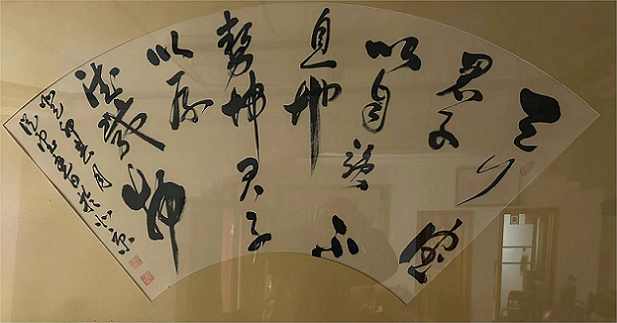 天行健
君子
以自强不
息地
势坤君子
以厚
德载物
癸卯 月